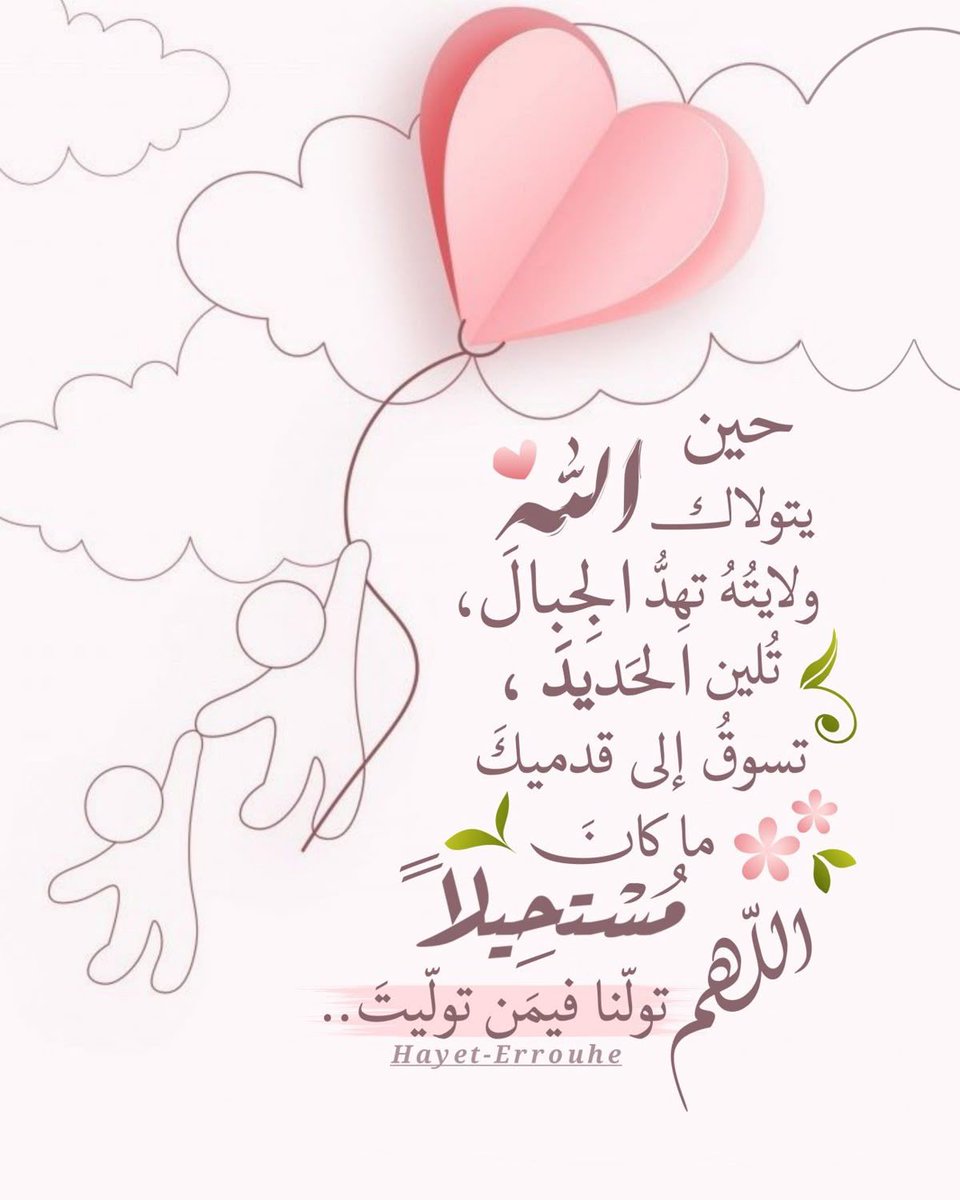 حين
يتولاك الله
ولايتُهُ تهِدُّ الجِبالَ،
تُلين الحَديدَ ،
تسوقُ إلى قدميكَ
ما كانَ
مُسْتحِيلاً
اللّهم
تولّنا فيمَن تولّيتَ..
Hayet-Errouhe